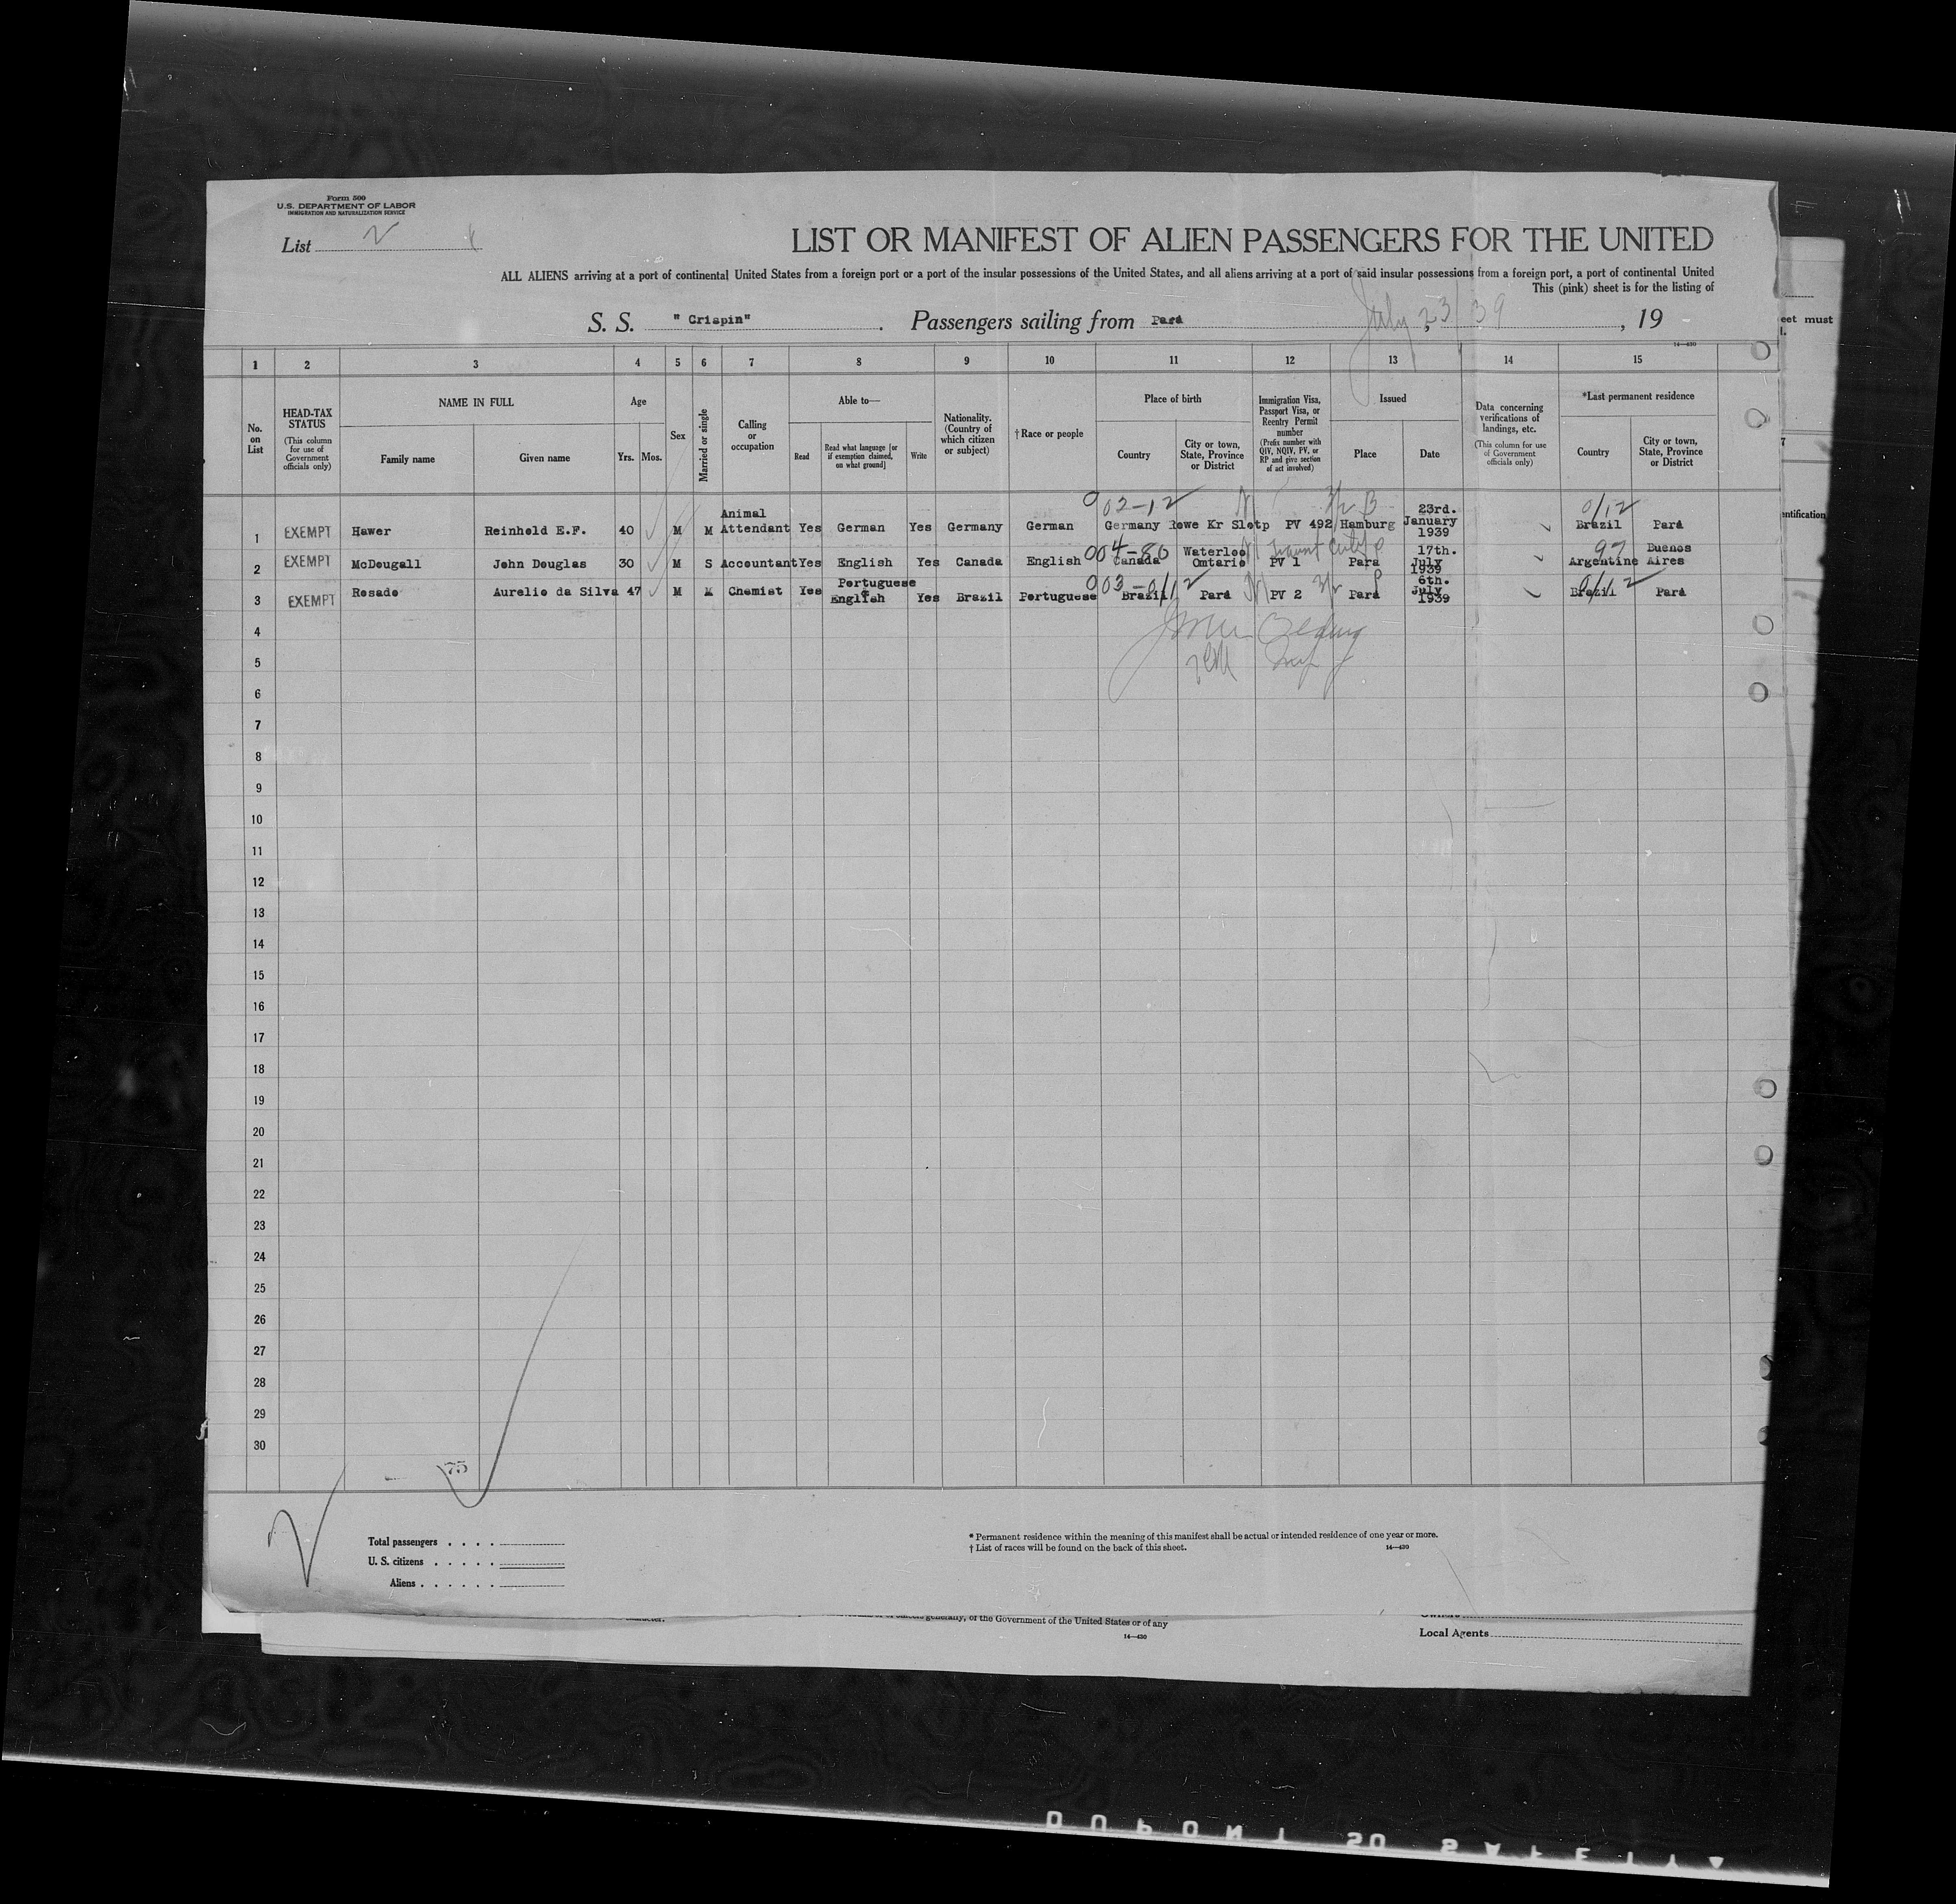 Form 500
U.S. DEPARTMENT OF LABOR
IMMIGRATION AND NATURALIZATION SERVICE
List 2
LIST OR MANIFEST OF ALIEN PASSENGERS FOR THE UNITED
ALL ALIENS arriving at a port of continental United States from a foreign port or a port of the insular possessions of the United States, and all aliens arriving at a port of said insular possessions from a foreign port, a port of continental United
This (pink) sheet is for the listing of
S. S. "Crispin". Passengers sailing from Pará July 23/39, 19
eet must
14—430
1 2 3 4 5 6 7 8 9 10 11 12 13 14 15
No. on List
HEAD-TAX STATUS
(This column for use of Government officials only)
NAME IN FULL
Family name
Given name
Age
Yrs. Mos.
Sex
Married or single
Calling or occupation
Able to—
Read
Read what language [or if exemption claimed, on what ground]
Write
Nationality. (Country of which citizen or subject)
†Race or people
Place of birth
Country
City or town, State, Province or District
Immigration Visa, Passport Visa, or Reentry Permit number
(Prefix number with QIV, NQIV, PV, or RP and give section of act involved)
Issued
Place
Date
Data concerning verifications of landings, etc.
(This column for use of Government officials only)
*Last permanent residence
Country
City or town, State, Province or District
entification
002-12 0/12
1 EXEMPT Hawer Reinhold E.F. 40 M M Animal Attendant Yes German Yes Germany German Germany Rowe Kr Slotp PV 492 Hamburg 23rd. January 1939 Brazil Pará
004-80 97
2 EXEMPT McDougall John Douglas 30 M S Accountant Yes English Yes Canada English Canada Waterloo Omtario PV 1 Para 17th. July 1939 Argentine Buenos Aires
003-0/12 0/12
3 EXEMPT Rosado Aurelio da Silva 47 M M Chemist Yes Portuguese & English Yes Brazil Portuguese Brazil Pará PV 2 Pará 6th. July 1939 Brazil Pará
4
5
6
7
8
9
10
11
12
13
14
15
16
17
18
19
20
21
22
23
24
25
26
27
28
29
30
75
Total passengers
U. S. citizens
Aliens
* Permanent residence within the meaning of this manifest shall be actual or intended residence of one year or more.
† List of races will be found on the back of this sheet.
14—430
generally, of the Government of the United States or of any
14—430
Owners
Local Agents
DUPONT SO SAFETY